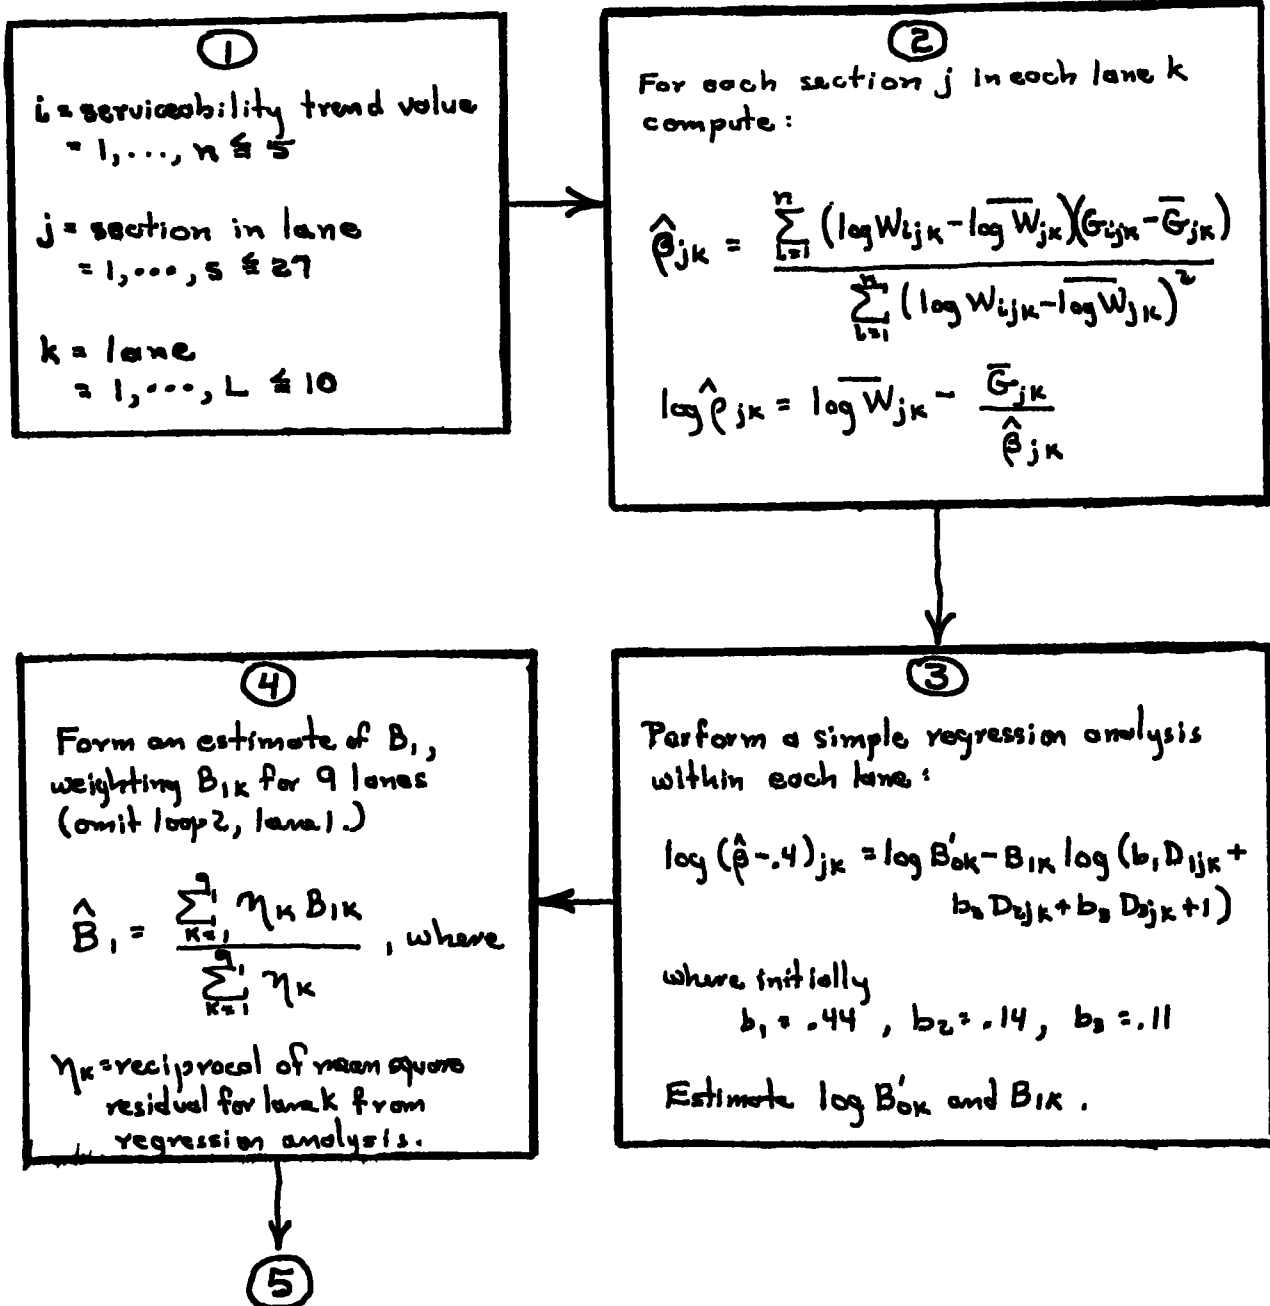 ①
i = serviceability trend value
= 1, ..., n ≦ 5
j = section in lane
= 1, ..., s ≦ 27
k = lane
= 1, ..., L ≦ 10
②
For each section j in each lane k
compute:
β̂jk = Σⁿi=1 (log Wijk - l̅o̅g̅ W̅jk)(Gijk - G̅jk) / Σⁿi=1 (log Wijk - l̅o̅g̅ W̅jk)²
log ρ̂jk = l̅o̅g̅ W̅jk - G̅jk / β̂jk
③
Perform a simple regression analysis
within each lane:
log (β̂ - .4)jk = log B'ok - B1k log (b1 D1jk +
b2 D2jk + b3 D3jk + 1)
where initially
b1 = .44 , b2 = .14, b3 = .11
Estimate log B'ok and B1k .
④
Form an estimate of B1,
weighting B1k for 9 lanes
(omit loop 2, lane 1.)
B̂1 = Σ⁹k=1 ηk B1k / Σ⁹k=1 ηk , where
ηk = reciprocal of mean square
residual for lane k from
regression analysis.
⑤